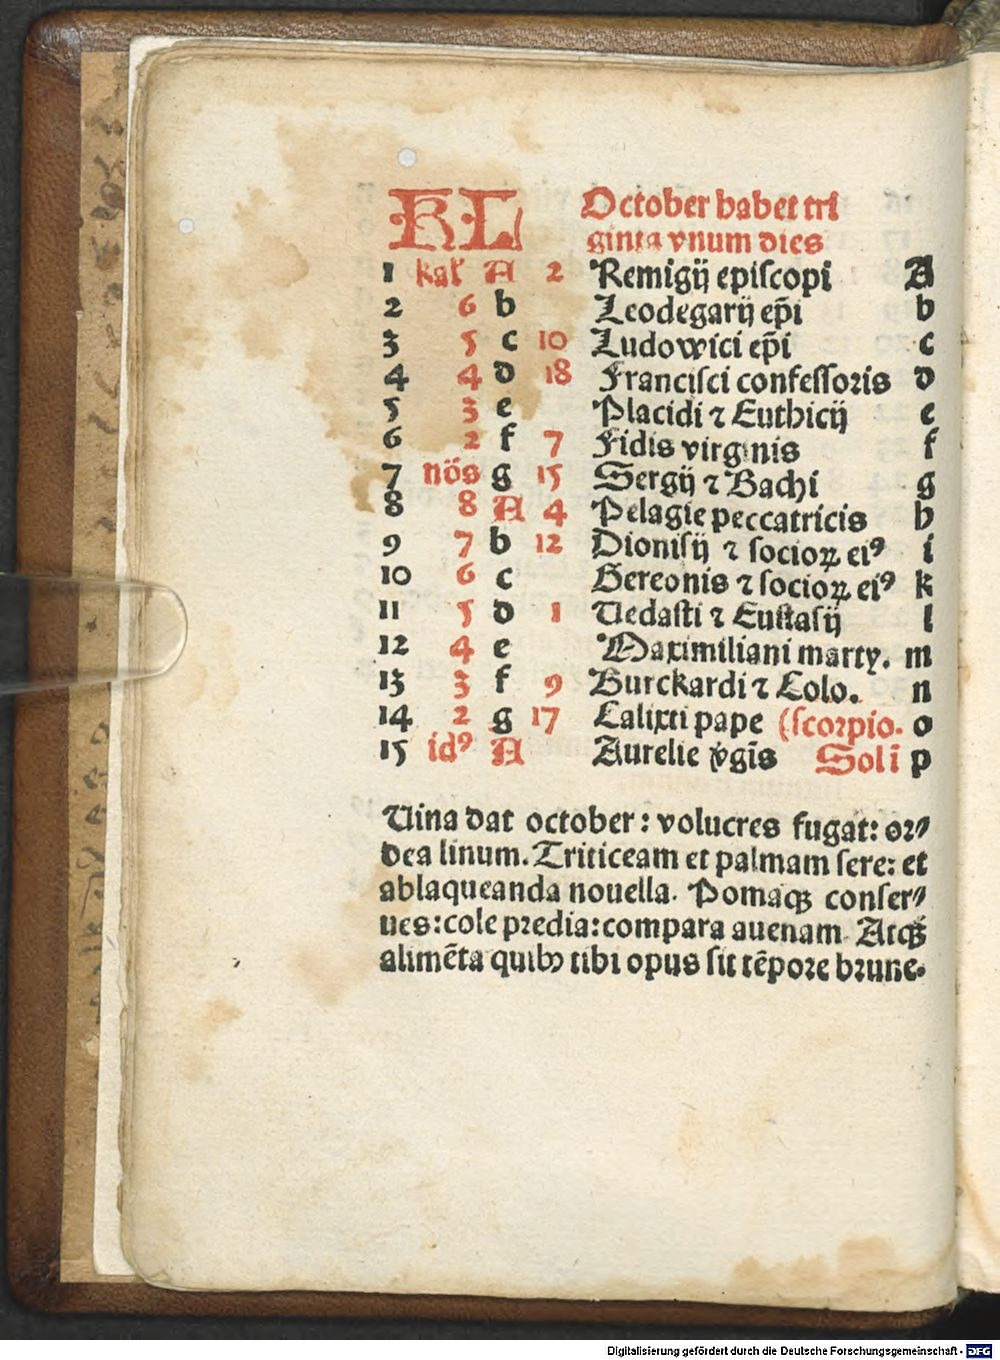 KL October habet tri
ginta vnum dies
1 kal' A 2 Remigij episcopi A
2 6 b Leodegarij ep̄i b
3 5 c 10 Ludowici ep̄i c
4 4 d 18 Francisci confessoris d
5 3 e Placidi ⁊ Euthicij e
6 2 f 7 Fidis virginis f
7 nōs g 15 Sergij ⁊ Bachi g
8 8 A 4 Pelagie peccatricis h
9 7 b 12 Dionisij ⁊ socioꝝ eiꝰ i
10 6 c Gereonis ⁊ socioꝝ eiꝰ k
11 5 d 1 Uedasti ⁊ Eustasij l
12 4 e Maximiliani marty. m
13 3 f 9 Burckardi ⁊ Colo. n
14 2 g 17 Calixti pape (scorpio. o
15 idꝰ A Aurelie v̄gīs Sol ī p
Uina dat october: volucres fugat: or⸗
dea linum. Triticeam et palmam sere: et
ablaqueanda nouella. Pomaqꝫ conser⸗
ues: cole predia: compara auenam. Atqꝫ
alimēta quibꝰ tibi opus sit tēpore brume.
Digitalisierung gefördert durch die Deutsche Forschungsgemeinschaft - DFG